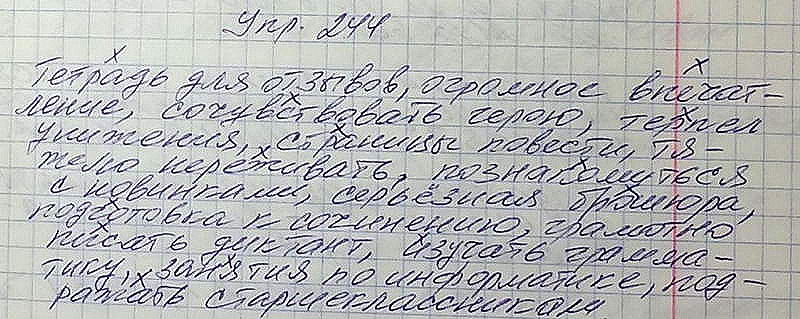 Упр. 244
Тетрадь для отзывов, огромное впечат-
ление, сочувствовать герою, терпел
унижения, страницы повести, тя-
жело переживать, познакомиться
с новинками, серьёзная брошюра,
подготовка к сочинению, грамотно
писать диктант, изучать грамма-
тику, занятия по информатике, под-
ражать старшеклассникам